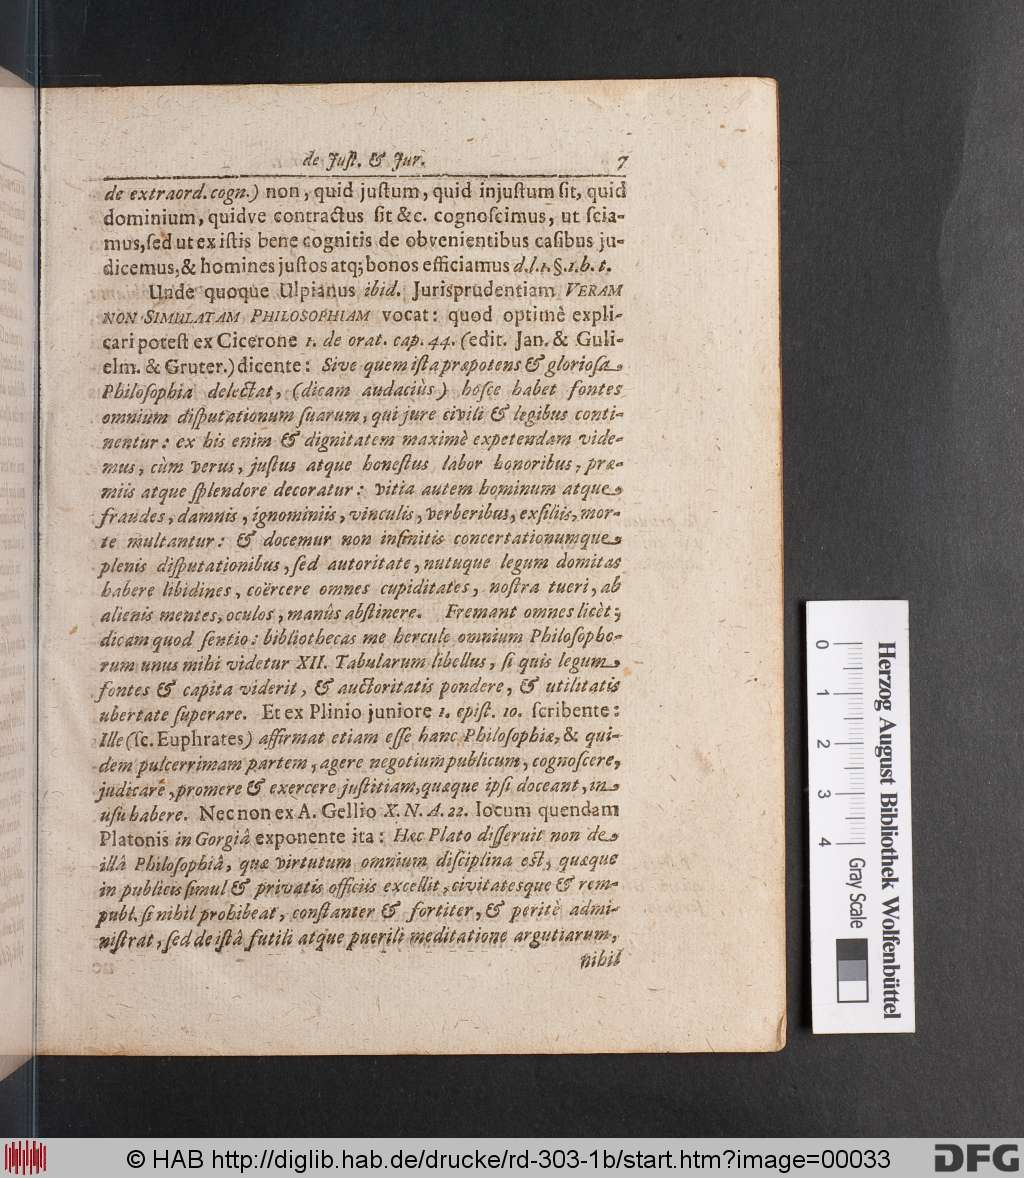 de Juſt. & Jur. 7
de extraord. cogn.) non, quid juſtum, quid injuſtum ſit, quid
dominium, quidve contractus ſit &c. cognoſcimus, ut ſcia-
mus, ſed ut ex iſtis bene cognitis de obvenientibus caſibus ju-
dicemus, & homines juſtos atq; bonos efficiamus d. l. 1. §. 1. h. t.
Unde quoque Ulpianus ibid. Jurisprudentiam VERAM
NON SIMULATAM PHILOSOPHIAM vocat: quod optimè expli-
cari poteſt ex Cicerone 1. de orat. cap. 44. (edit. Jan. & Guli-
elm. & Gruter.) dicente: Sive quem iſta præpotens & glorioſa
Philoſophia delectat, (dicam audaciùs) hoſce habet fontes
omnium diſputationum ſuarum, qui jure civili & legibus conti-
nentur: ex his enim & dignitatem maximè expetendam vide-
mus, cùm verus, juſtus atque honeſtus labor honoribus, præ-
miis atque ſplendore decoratur: vitia autem hominum atque
fraudes, damnis, ignominiis, vinculis, verberibus, exſiliis, mor-
te multantur: & docemur non infinitis concertationumque
plenis diſputationibus, ſed autoritate, nutuque legum domitas
habere libidines, coërcere omnes cupiditates, noſtra tueri, ab
alienis mentes, oculos, manûs abſtinere. Fremant omnes licèt;
dicam quod ſentio: bibliothecas me hercule omnium Philoſopho-
rum unus mihi videtur XII. Tabularum libellus, ſi quis legum
fontes & capita viderit, & auctoritatis pondere, & utilitatis
ubertate ſuperare. Et ex Plinio juniore 1. epiſt. 10. ſcribente:
Ille (ſc. Euphrates) affirmat etiam eſſe hanc Philoſophiæ, & qui-
dem pulcerrimam partem, agere negotium publicum, cognoſcere,
judicare, promere & exercere juſtitiam, quæque ipſi doceant, in
uſu habere. Nec non ex A. Gellio X. N. A. 22. locum quendam
Platonis in Gorgiâ exponente ita: Hæc Plato diſſeruit non de
illâ Philoſophiâ, quæ virtutum omnium diſciplina eſt, quæque
in publicis ſimul & privatis officiis excellit, civitatesque & rem-
publ. ſi nihil prohibeat, conſtanter & fortiter, & peritè admi-
niſtrat, ſed de iſtâ futili atque puerili meditatione argutiarum,
nihil
Herzog August Bibliothek Wolfenbüttel
0 1 2 3 4 Gray Scale
© HAB http://diglib.hab.de/drucke/rd-303-1b/start.htm?image=00033
DFG